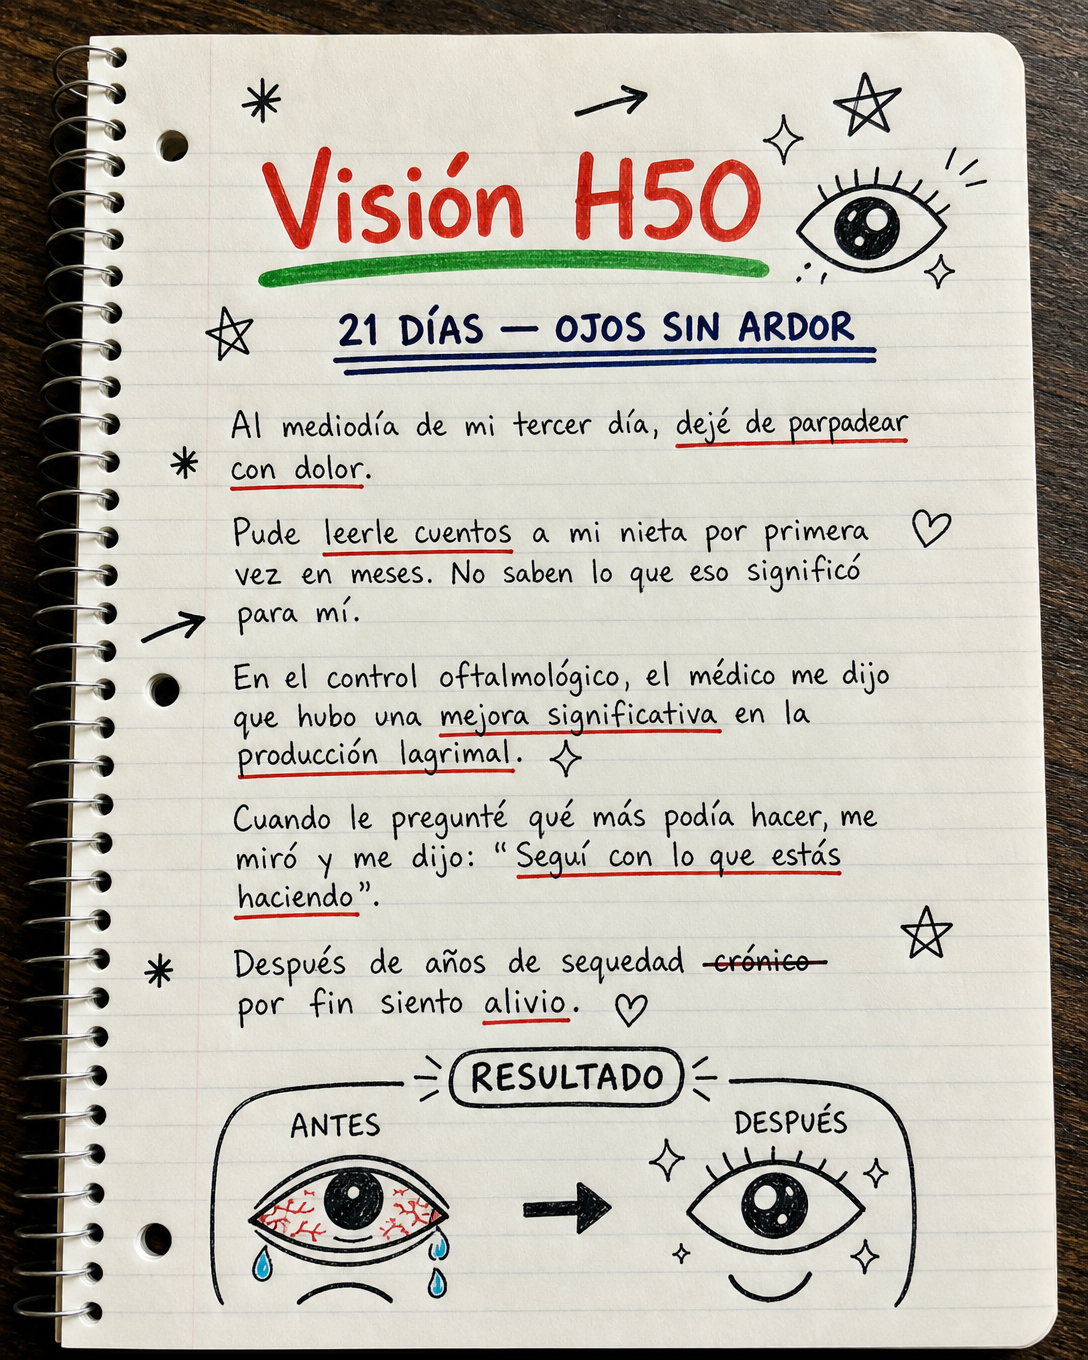 Visión H50
21 DÍAS — OJOS SIN ARDOR
Al mediodía de mi tercer día, dejé de parpadear
con dolor.
Pude leerle cuentos a mi nieta por primera
vez en meses. No saben lo que eso significó
para mí.
En el control oftalmológico, el médico me dijo
que hubo una mejora significativa en la
producción lagrimal.
Cuando le pregunté qué más podía hacer, me
miró y me dijo: “Seguí con lo que estás
haciendo”.
Después de años de sequedad crónico
por fin siento alivio.
RESULTADO
ANTES
DESPUÉS